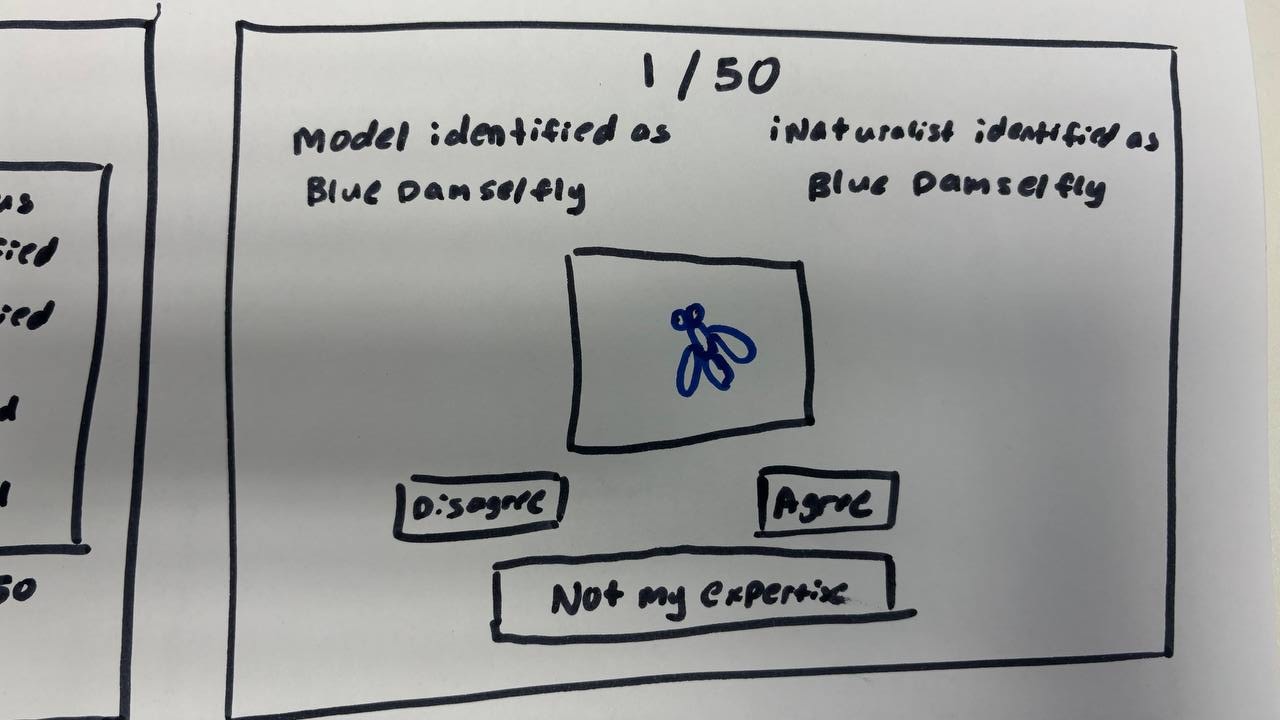 us
fied
ied
d
l
50
1/50
Model identified as
Blue Damselfly
iNaturalist identified as
Blue Damselfly
Disagree
Agree
Not my expertise